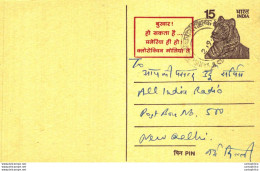 15 भारत
INDIA
बुखार!
हो सकता है...
मलेरिया ही हो।
क्लोरोक्विन गोलियां लें
To
All India Radio
Post Box No. 500
New Delhi.
पिन PIN
नई दिल्ली